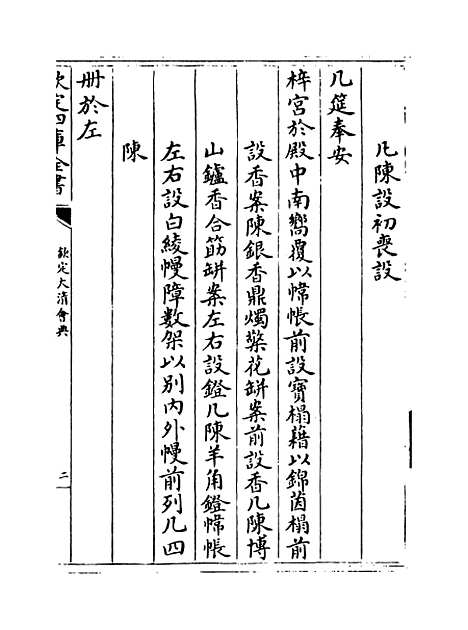 凡陳設初喪設
几筵奉安
梓宮於殿中南嚮覆以幃帳前設寶榻藉以錦茵榻前
設香案陳銀香鼎燭檠花缾案前設香几陳博
山鑪香合筯缾案左右設鐙几陳羊角鐙幃帳
左右設白綾幔障數架以别内外幔前列几四
陳
册於左
欽定四庫全書
欽定大清會典
二